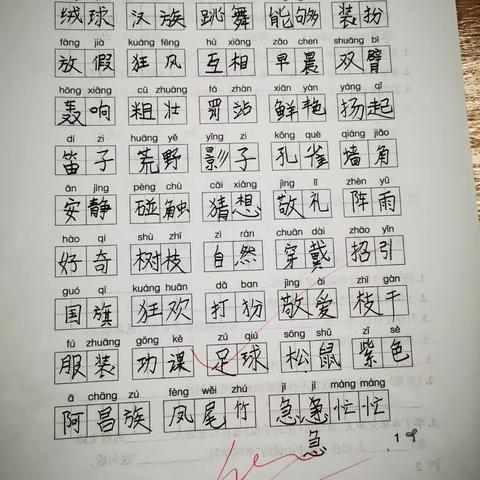 绒球 汉族 跳舞 能够 装扮
fàng jià kuáng fēng hù xiāng zǎo chen shuāng bì
放假 狂风 互相 早晨 双臂
hōng xiǎng cū zhuàng fá zhàn xiān yàn yáng qǐ
轰响 粗壮 罚站 鲜艳 扬起
dí zi huāng yě yǐng zi kǒng què qiáng jiǎo
笛子 荒野 影子 孔雀 墙角
ān jìng pèng chù cāi xiǎng jìng lǐ zhèn yǔ
安静 碰触 猜想 敬礼 阵雨
hào qí shù zhī zì rán chuān dài zhāo yǐn
好奇 树枝 自然 穿戴 招引
guó qí kuáng huān dǎ ban jìng ài zhī gàn
国旗 狂欢 打扮 敬爱 枝干
fú zhuāng gōng kè zú qiú sōng shǔ zǐ sè
服装 功课 足球 松鼠 紫色
ā chāng zú fèng wěi zhú jí jí máng máng
阿昌族 凤尾竹 急急忙忙
急
1
2